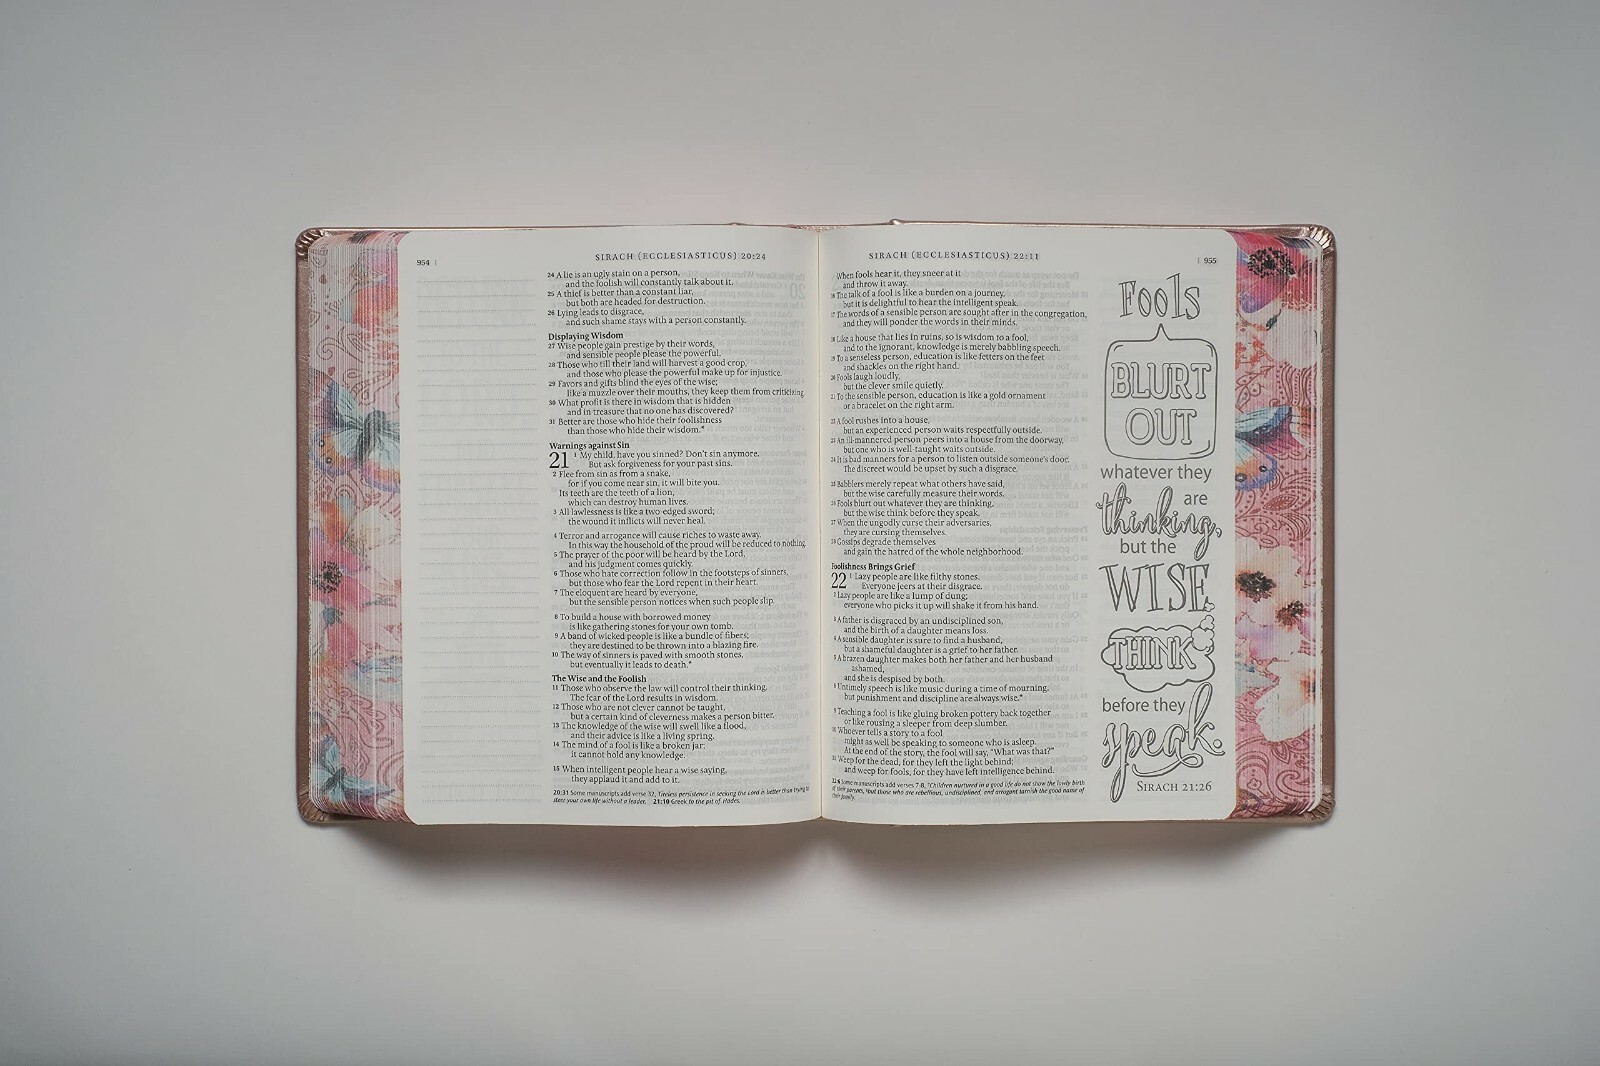 954
SIRACH (ECCLESIASTICUS) 20:24
24 A lie is an ugly stain on a person,
and the foolish will constantly talk about it.
25 A thief is better than a constant liar,
but both are headed for destruction.
26 Lying leads to disgrace,
and such shame stays with a person constantly.
Displaying Wisdom
27 Wise people gain prestige by their words,
and sensible people please the powerful.
28 Those who till their land will harvest a good crop,
and those who please the powerful make up for injustice.
29 Favors and gifts blind the eyes of the wise;
like a muzzle over their mouths, they keep them from criticizing.
30 What profit is there in wisdom that is hidden
and in treasure that no one has discovered?
31 Better are those who hide their foolishness
than those who hide their wisdom.*
Warnings against Sin
21 1 My child, have you sinned? Don't sin anymore.
But ask forgiveness for your past sins.
2 Flee from sin as from a snake,
for if you come near sin, it will bite you.
Its teeth are the teeth of a lion,
which can destroy human lives.
3 All lawlessness is like a two-edged sword;
the wound it inflicts will never heal.
4 Terror and arrogance will cause riches to waste away.
In this way the household of the proud will be reduced to nothing.
5 The prayer of the poor will be heard by the Lord,
and his judgment comes quickly.
6 Those who hate correction follow in the footsteps of sinners,
but those who fear the Lord repent in their heart.
7 The eloquent are heard by everyone,
but the sensible person notices when such people slip.
8 To build a house with borrowed money
is like gathering stones for your own tomb.
9 A band of wicked people is like a bundle of fibers;
they are destined to be thrown into a blazing fire.
10 The way of sinners is paved with smooth stones,
but eventually it leads to death.*
The Wise and the Foolish
11 Those who observe the law will control their thinking.
The fear of the Lord results in wisdom.
12 Those who are not clever cannot be taught,
but a certain kind of cleverness makes a person bitter.
13 The knowledge of the wise will swell like a flood,
and their advice is like a living spring.
14 The mind of a fool is like a broken jar;
it cannot hold any knowledge.
15 When intelligent people hear a wise saying,
they applaud it and add to it.
20:31 Some manuscripts add verse 32, Tireless persistence in seeking the Lord is better than trying to
steer your own life without a leader. 21:10 Greek to the pit of Hades.
SIRACH (ECCLESIASTICUS) 22:11
955
When fools hear it, they sneer at it
and throw it away.
16 The talk of a fool is like a burden on a journey,
but it is delightful to hear the intelligent speak.
17 The words of a sensible person are sought after in the congregation,
and they will ponder the words in their minds.
18 Like a house that lies in ruins, so is wisdom to a fool,
and to the ignorant, knowledge is merely babbling speech.
19 To a senseless person, education is like fetters on the feet
and shackles on the right hand.
20 Fools laugh loudly,
but the clever smile quietly.
21 To the sensible person, education is like a gold ornament
or a bracelet on the right arm.
22 A fool rushes into a house,
but an experienced person waits respectfully outside.
23 An ill-mannered person peers into a house from the doorway,
but one who is well-taught waits outside.
24 It is bad manners for a person to listen outside someone's door.
The discreet would be upset by such a disgrace.
25 Babblers merely repeat what others have said,
but the wise carefully measure their words.
26 Fools blurt out whatever they are thinking,
but the wise think before they speak.
27 When the ungodly curse their adversaries,
they are cursing themselves.
28 Gossips degrade themselves
and gain the hatred of the whole neighborhood.
Foolishness Brings Grief
22 1 Lazy people are like filthy stones.
Everyone jeers at their disgrace.
2 Lazy people are like a lump of dung;
everyone who picks it up will shake it from his hand.
3 A father is disgraced by an undisciplined son,
and the birth of a daughter means loss.
4 A sensible daughter is sure to find a husband,
but a shameful daughter is a grief to her father.
5 A brazen daughter makes both her father and her husband
ashamed,
and she is despised by both.
6 Untimely speech is like music during a time of mourning,
but punishment and discipline are always wise.*
9 Teaching a fool is like gluing broken pottery back together
or like rousing a sleeper from deep slumber.
10 Whoever tells a story to a fool
might as well be speaking to someone who is asleep.
At the end of the story, the fool will say, "What was that?"
11 Weep for the dead, for they left the light behind;
and weep for fools, for they have left intelligence behind.
22:6 Some manuscripts add verses 7-8, "Children nurtured in a good life do not show the lowly birth
of their parents, 8but those who are rebellious, undisciplined, and arrogant tarnish the good name of
their family.
FOOLS
BLURT
OUT
whatever they
are
thinking,
but the
WISE
THINK
before they
speak.
SIRACH 21:26